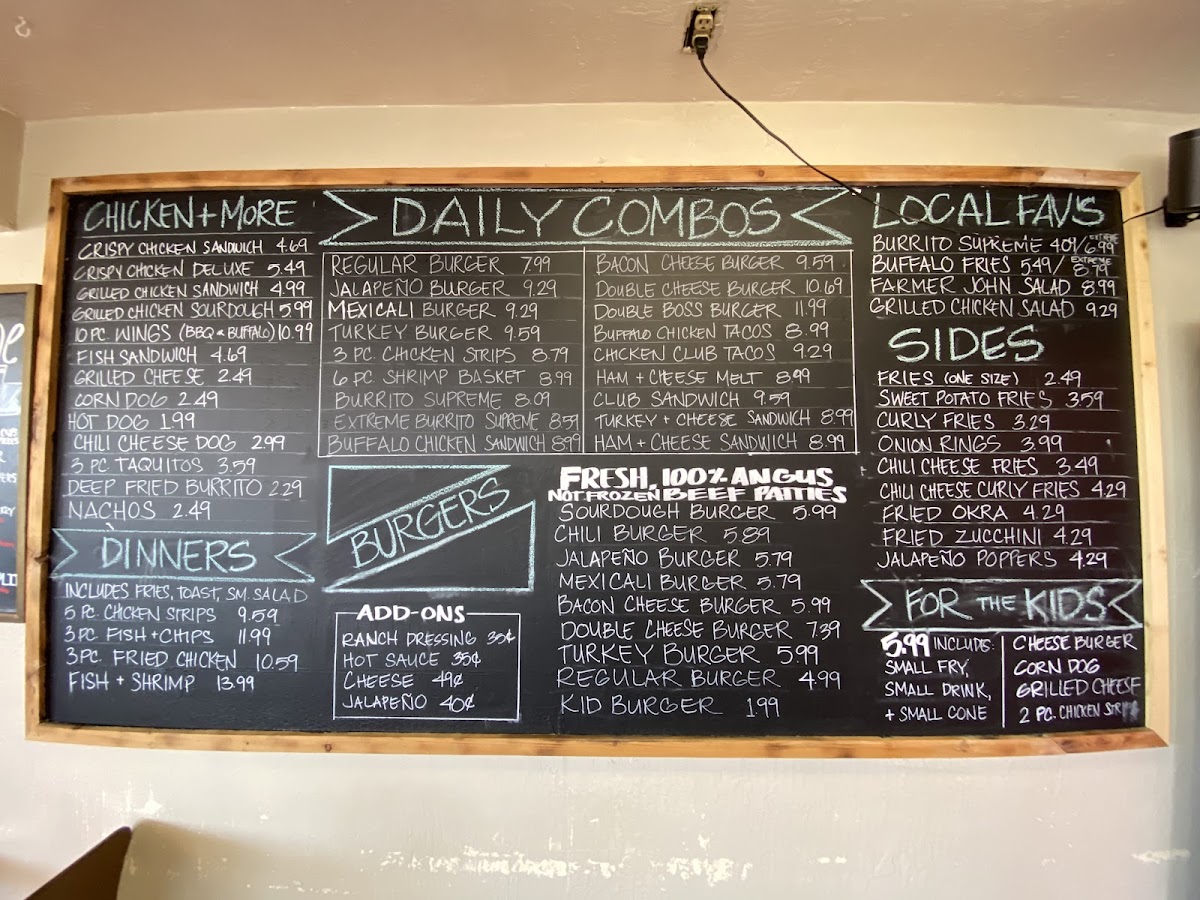 CHICKEN + MORE
CRISPY CHICKEN SANDWICH 4.69
CRISPY CHICKEN DELUXE 5.49
GRILLED CHICKEN SANDWICH 4.99
GRILLED CHICKEN SOURDOUGH 5.99
10 PC. WINGS (BBQ & BUFFALO) 10.99
FISH SANDWICH 4.69
GRILLED CHEESE 2.49
CORN DOG 2.49
HOT DOG 1.99
CHILI CHEESE DOG 2.99
3 PC TAQUITOS 3.59
DEEP FRIED BURRITO 2.29
NACHOS 2.49
DINNERS
INCLUDES FRIES, TOAST, SM. SALAD
5 PC. CHICKEN STRIPS 9.59
3 PC FISH + CHIPS 11.99
3 PC. FRIED CHICKEN 10.59
FISH + SHRIMP 13.99
DAILY COMBOS
REGULAR BURGER 7.99
JALAPEÑO BURGER 9.29
MEXICALI BURGER 9.29
TURKEY BURGER 9.59
3 PC. CHICKEN STRIPS 8.79
6 PC. SHRIMP BASKET 8.99
BURRITO SUPREME 8.09
EXTREME BURRITO SUPREME 8.59
BUFFALO CHICKEN SANDWICH 8.99
BACON CHEESE BURGER 9.59
DOUBLE CHEESE BURGER 10.69
DOUBLE BOSS BURGER 11.99
BUFFALO CHICKEN TACOS 8.99
CHICKEN CLUB TACOS 9.29
HAM + CHEESE MELT 8.99
CLUB SANDWICH 9.59
TURKEY + CHEESE SANDWICH 8.99
HAM + CHEESE SANDWICH 8.99
BURGERS
ADD-ONS
RANCH DRESSING 35¢
HOT SAUCE 35¢
CHEESE 49¢
JALAPEÑO 40¢
FRESH, 100% ANGUS
NOT FROZEN BEEF PATTIES
SOURDOUGH BURGER 5.99
CHILI BURGER 5.89
JALAPEÑO BURGER 5.79
MEXICALI BURGER 5.79
BACON CHEESE BURGER 5.99
DOUBLE CHEESE BURGER 7.39
TURKEY BURGER 5.99
REGULAR BURGER 4.99
KID BURGER 1.99
LOCAL FAV'S
BURRITO SUPREME 4.09/ EXTREME 6.99
BUFFALO FRIES 5.49/ EXTREME 8.79
FARMER JOHN SALAD 8.99
GRILLED CHICKEN SALAD 9.29
SIDES
FRIES (ONE SIZE) 2.49
SWEET POTATO FRIES 3.59
CURLY FRIES 3.29
ONION RINGS 3.99
CHILI CHEESE FRIES 3.49
CHILI CHEESE CURLY FRIES 4.29
FRIED OKRA 4.29
FRIED ZUCCHINI 4.29
JALAPEÑO POPPERS 4.29
FOR THE KIDS
5.99 INCLUDES:
SMALL FRY,
SMALL DRINK,
+ SMALL CONE
CHEESE BURGER
CORN DOG
GRILLED CHEESE
2 PC. CHICKEN STRIPS